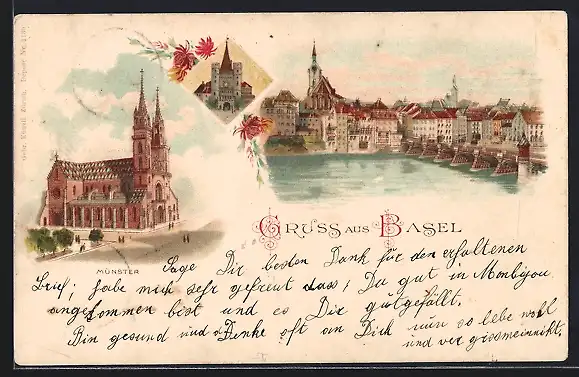 GRUSS AUS BASEL
MÜNSTER
Sage Dir besten Dank für den erhaltenen
Brief; habe mich sehr gefreut dass, Du gut in Monbijou
angekommen bist und es Dir gutgefällt.
Bin gesund und Denke oft an Dich nun so lebe wohl
und vergissmeinnikt.